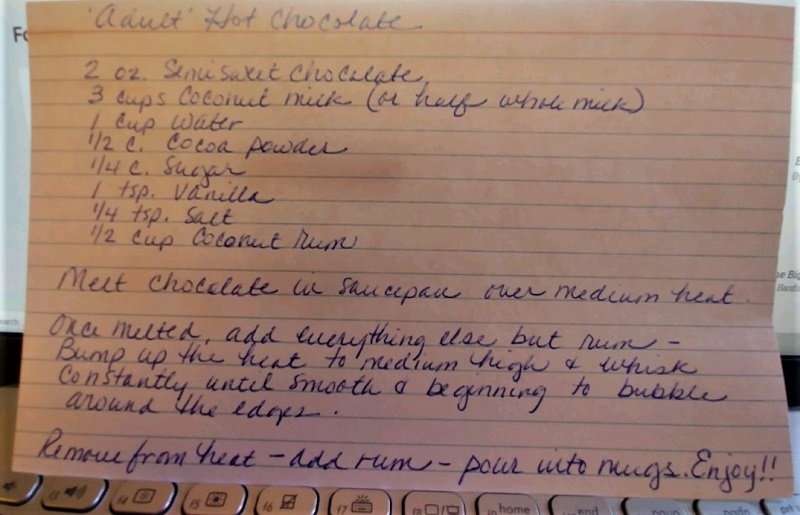 'Adult' Hot Chocolate
2 oz. Semisweet Chocolate
3 cups Coconut milk (or half whole milk)
1 cup Water
1/2 c. Cocoa powder
1/4 c. Sugar
1 tsp. Vanilla
1/4 tsp. Salt
1/2 cup Coconut Rum
Melt chocolate in saucepan over medium heat.
Once melted, add everything else but rum -
Bump up the heat to medium high & whisk
constantly until smooth & beginning to bubble
around the edges.
Remove from heat - add rum - pour into mugs. Enjoy!!
f4
f5
f6
f7
f8
home
end